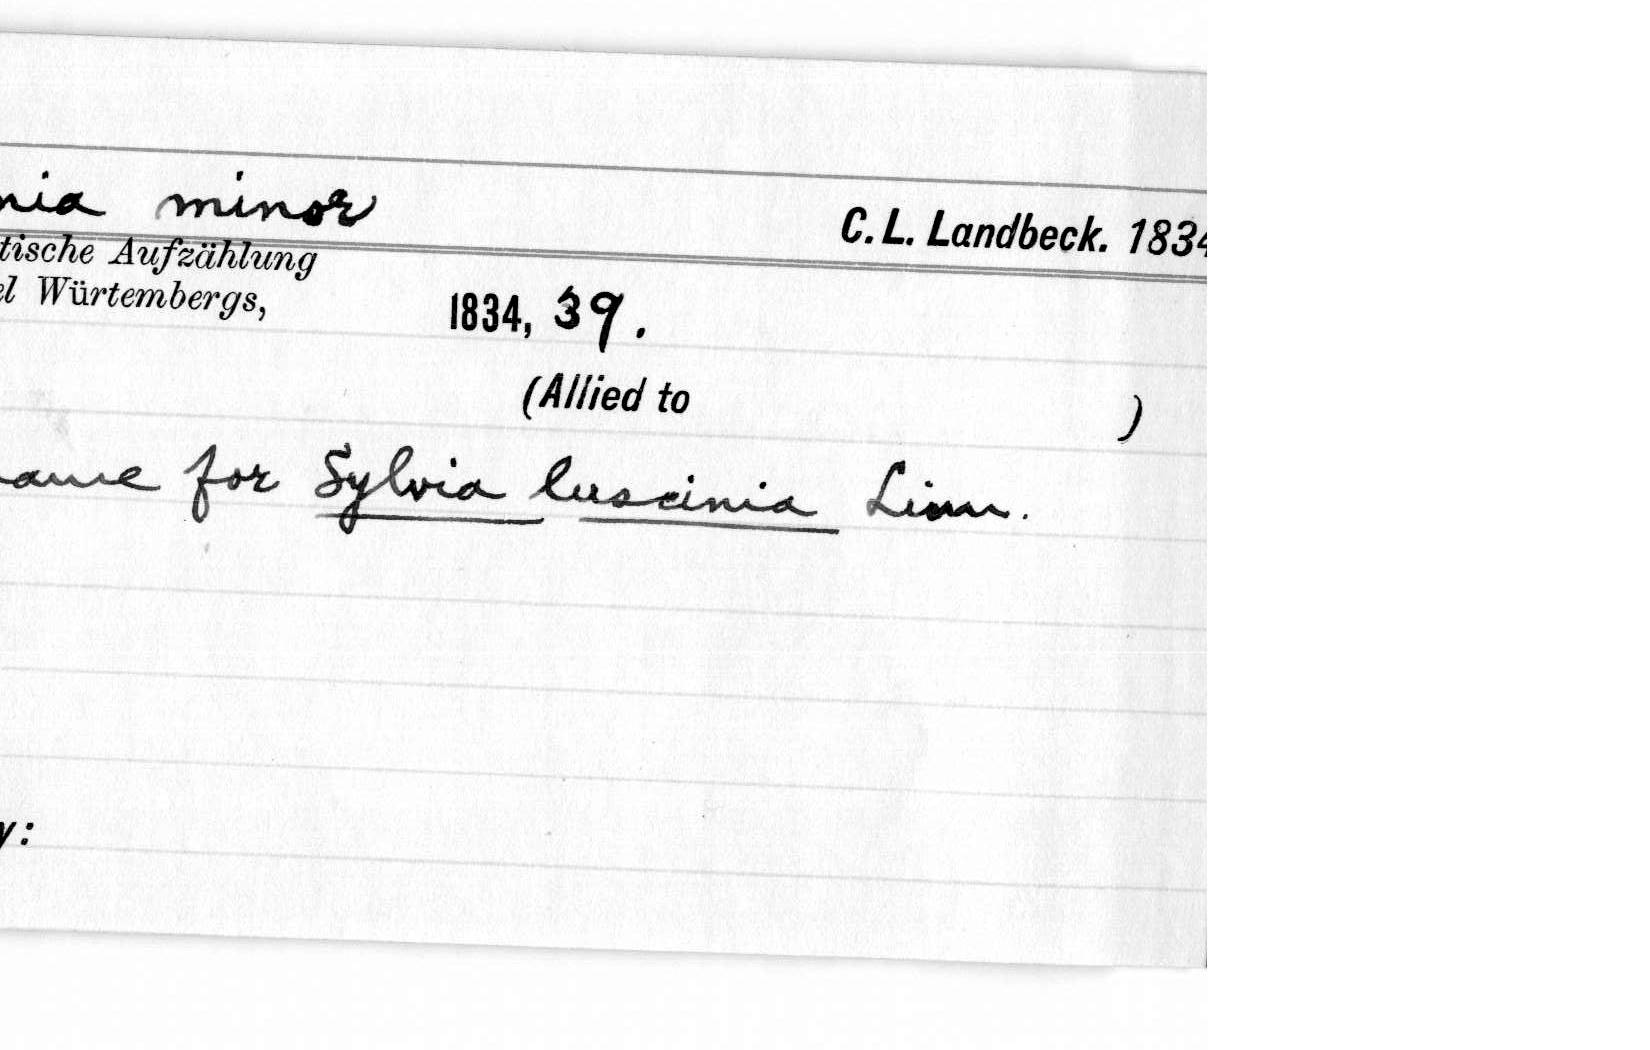 nia minor
C. L. Landbeck. 1834
tische Aufzählung
el Würtembergs,
1834, 39.
(Allied to )
name for Sylvia luscinia Linn.
y: